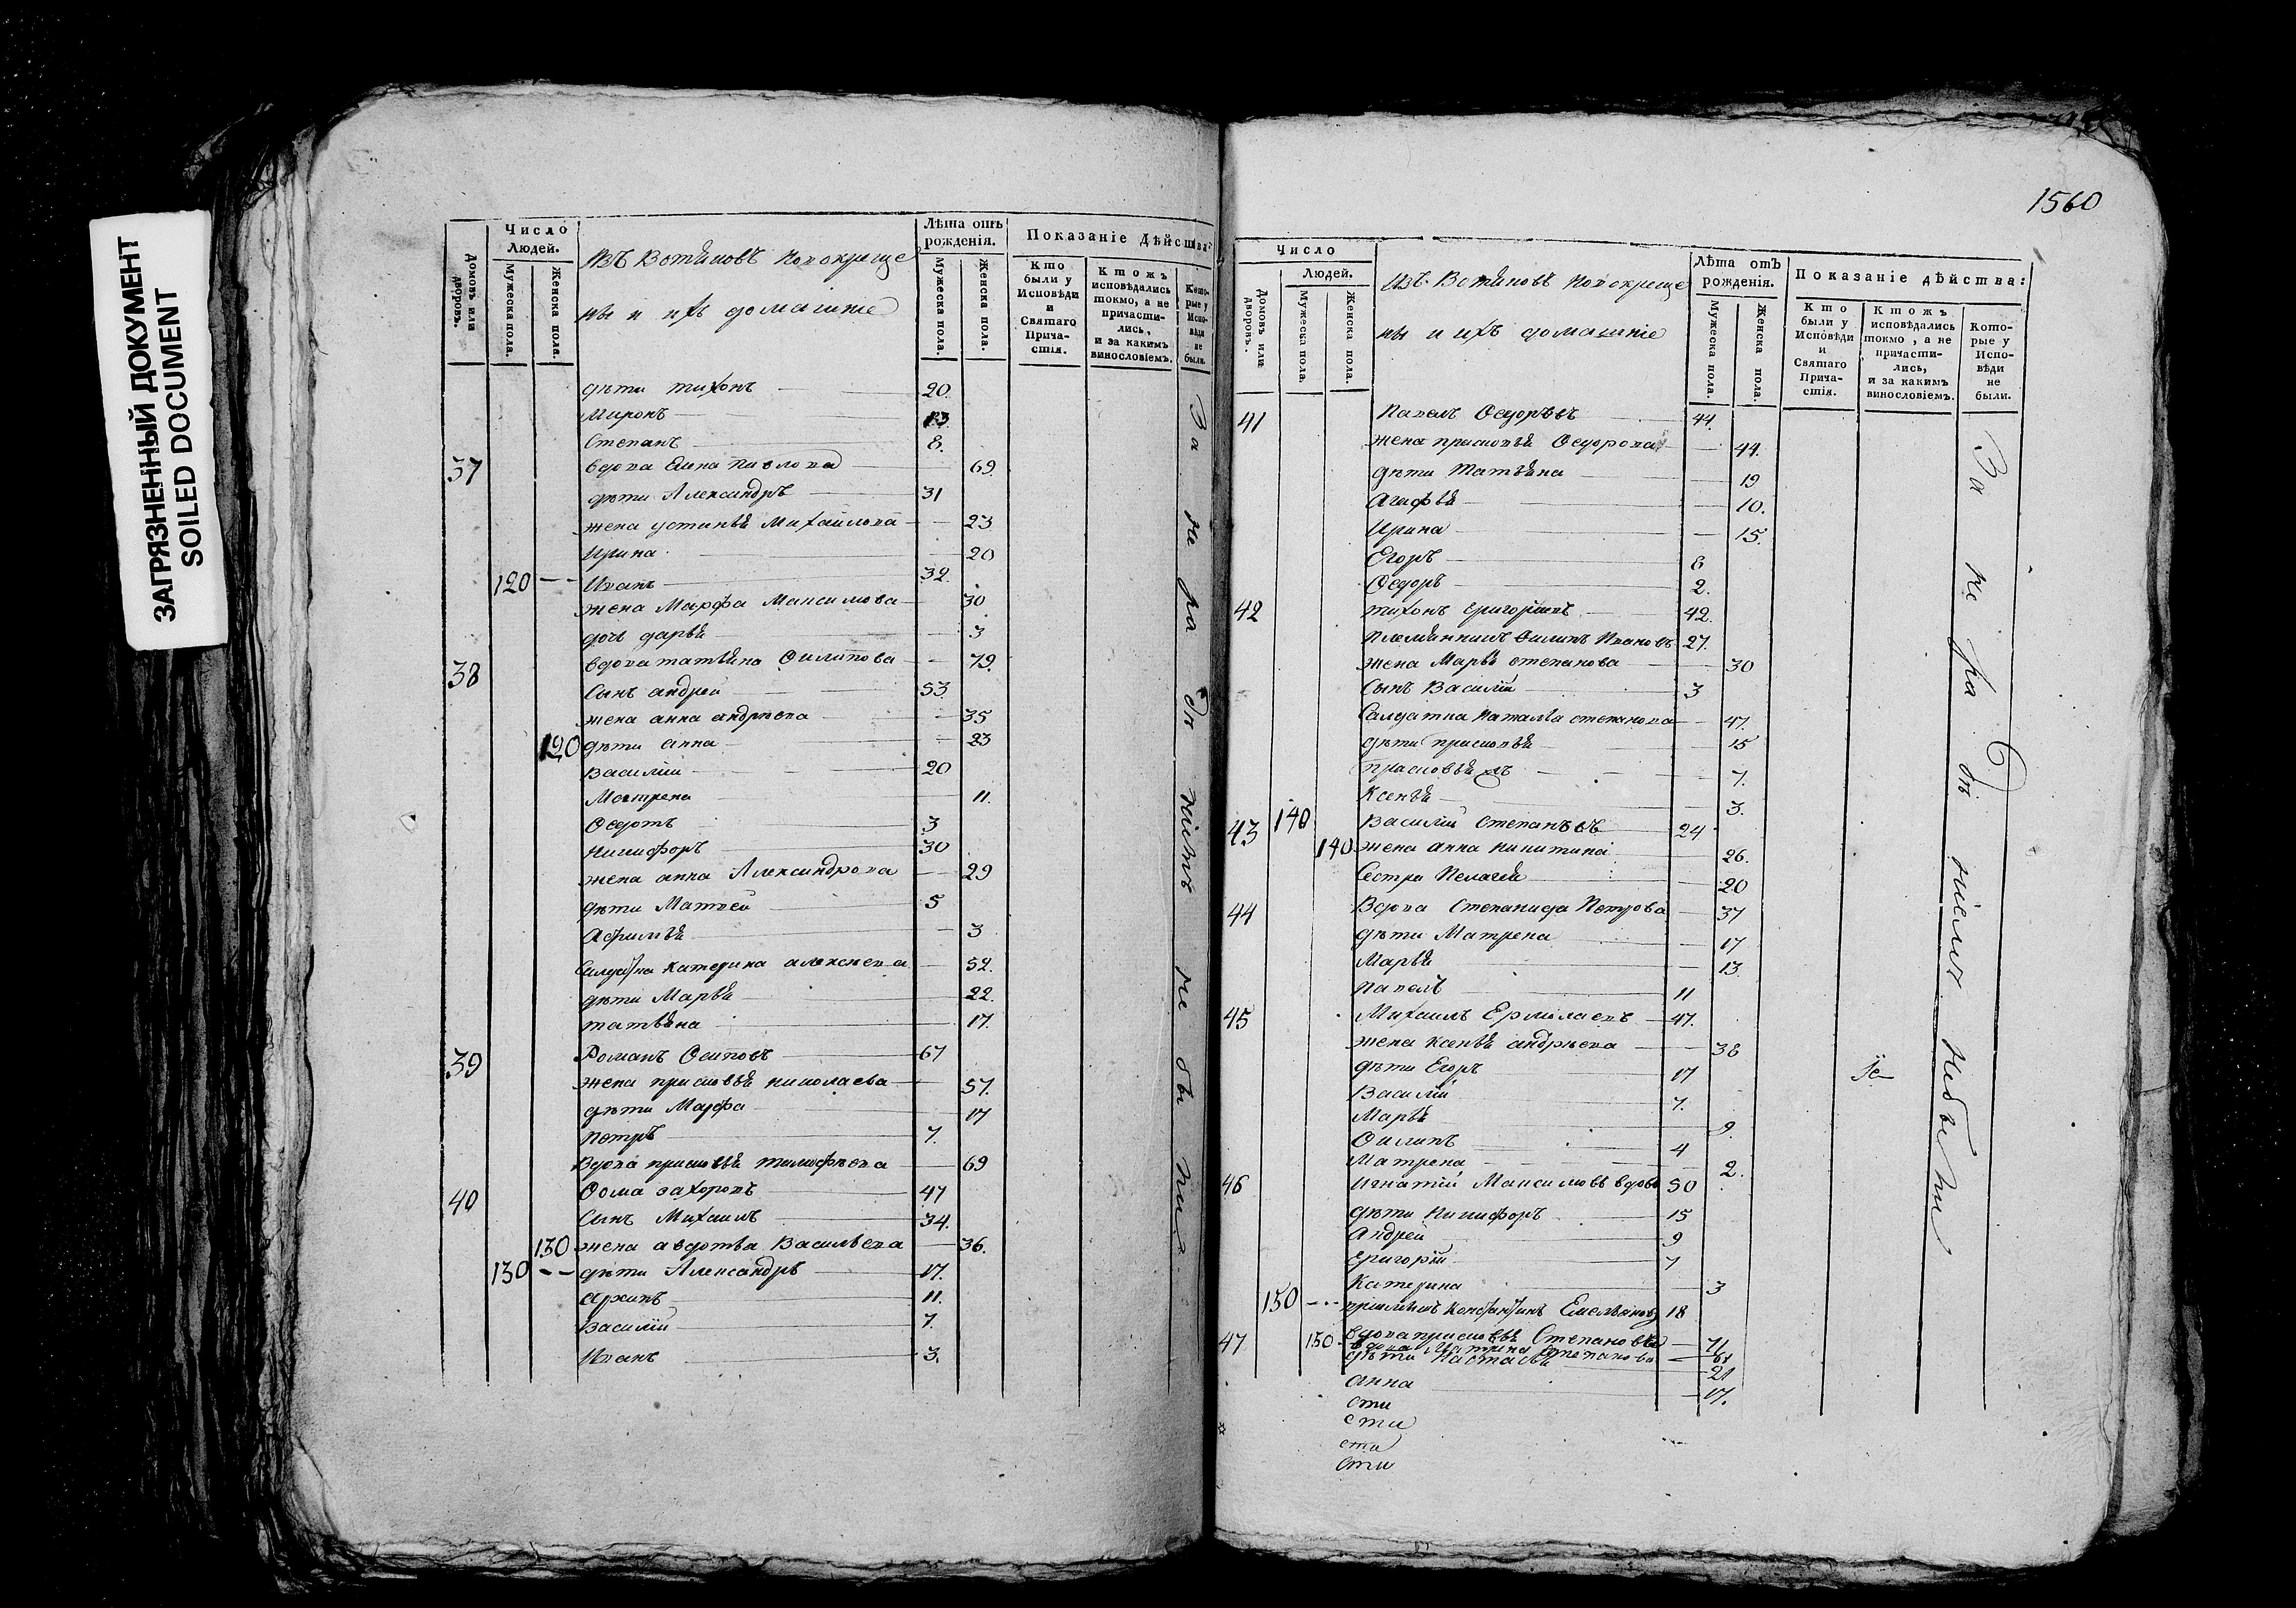 ЗАГРЯЗНЕННЫЙ ДОКУМЕНТ
SOILED DOCUMENT
Домовъ или дворовъ.
Число Людей.
Мужеска пола.
Женска пола.
Изъ Вотяковъ новокреще
ны и ихъ домашніе
Лѣта отъ рожденія.
Мужеска пола.
Женска пола.
Показаніе Дѣйства:
Кто были у Исповѣди и Святаго Прича-стія.
Ктожъ исповѣдались токмо, а не причасти-лись, и за какимъ винословіемъ.
Кото-рые у Испо-вѣди не были.
дѣти тихонъ 20.
Миронъ 13
Степанъ 8.
37 вдова Павлова 69.
дѣти Александръ 31
жена устинья Михайлова 23
Ирина 20
120 Иванъ 32.
жена Марфа Максимова 30
дочь дарья 3
38 вдова татьяна Филипова 79.
Сынъ андрей 53.
жена анна андрѣева 35
120 дѣти анна 23
василій 20
Матрена 11.
Федотъ 3
Никифоръ 30
жена анна Александрова 29
дѣти Матвей 5
Афимья 3
катерина алексѣева 52.
дѣти Марья 22.
татьяна 17.
39 Романъ Осиповъ 67
жена прасковья николаева 57.
дѣти Марфа 17
петръ 7.
Вдова прасковья тимофѣева 69
40 Фома захаровъ 47
Сынъ Михаилъ 34.
130 жена авдотья Васильева 36.
130 дѣти Александръ 17.
архипъ 11.
Василій 7.
Иванъ 3.
За не ра де ніемъ не бы ли
1560
Домовъ или дворовъ.
Число Людей.
Мужеска пола.
Женска пола.
Изъ Вотяковъ новокреще
ны и ихъ домашніе
Лѣта отъ рожденія.
Мужеска пола.
Женска пола.
Показаніе дѣйства:
Кто были у Исповѣди и Святаго Прича-стія.
Ктожъ исповѣдались токмо, а не причасти-лись, и за какимъ винословіемъ.
Кото-рые у Испо-вѣди не были.
41 Павелъ Федоровъ 44.
жена прасковья Федорова 44.
дѣти Татьяна 19
Агафья 10.
Ирина 15.
Егоръ 8
Федоръ 2.
42 тихонъ григорьевъ 42.
племянникъ Филипъ Ивановъ 27.
жена Марья степанова 30
Сынъ Василій 3
Салдатка наталья степанова 47.
дѣти прасковья 15
прасковья 7.
Ксенья 3.
43 140 Василій Степановъ 24
140 жена анна никитина 26.
Сестра Пелагея 20
44 Вдова Степанида Петрова 37
дѣти Матрена 17
Марья 13.
павелъ 11
45 Михаилъ Ермолаевъ 47.
жена ксенья андрѣева 38
дѣти Егоръ 17
Василій 7.
Марья 9.
Филипъ 4
Матрена 2.
46 Игнатій Максимовъ вдовъ 50
дѣти Никифоръ 15
Андрей 9
григорій 7
Катерина 3
150 Емельяновъ 18
47 150 вдова прасковья Степанова 71
вдова Степанова
дѣти Наталья 21
анна 17.
сти
сти
сти
сти
За не ра де ніемъ небы ли